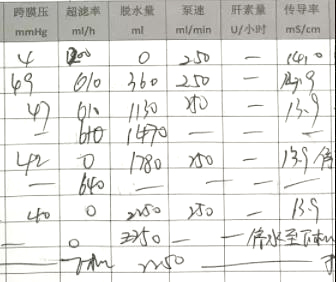 跨膜压 超滤率 脱水量 泵速 肝素量 传导率
mmHg ml/h ml ml/min U/小时 mS/cm
4 0 250 — 14.0
49 610 360 250 — 13.9
47 610 1130 250 — 13.9
— 610 1470 — — —
42 0 1780 250 — 13.9
— 640 — — — —
40 0 2250 250 — 13.9
— 0 2250 — — 停水至下机
— 下机 2250 —